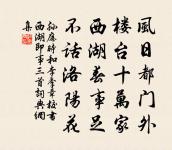 風日都門外
楼台十萬家
西湖春事足
不話洛陽花
孫應時和李季章校書
西湖即事三首詞典網
集